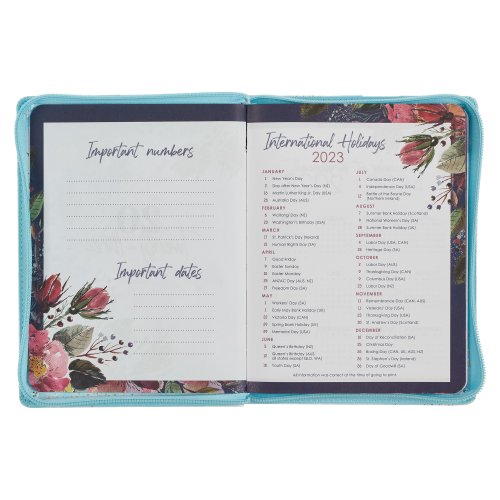 Important numbers
Important dates
International Holidays
2023
JANUARY
1 New Year's Day
2 Day after New Year's Day (NZ)
16 Martin Luther King Jr. Day (USA)
26 Australia Day (AUS)
FEBRUARY
6 Waitangi Day (NZ)
20 Washington's Birthday (USA)
MARCH
17 St. Patrick's Day (Ireland)
21 Human Rights Day (SA)
APRIL
7 Good Friday
9 Easter Sunday
10 Easter Monday
25 ANZAC Day (AUS, NZ)
27 Freedom Day (SA)
MAY
1 Workers' Day (SA)
1 Early May Bank Holiday (UK)
22 Victoria Day (CAN)
29 Spring Bank Holiday (UK)
29 Memorial Day (USA)
JUNE
5 Queen's Birthday (NZ)
12 Queen's Birthday (AUS
all states except QLD, WA)
16 Youth Day (SA)
JULY
1 Canada Day (CAN)
4 Independence Day (USA)
12 Battle of the Boyne Day
(Northern Ireland)
AUGUST
7 Summer Bank Holiday (Scotland)
9 National Women's Day (SA)
28 Summer Bank Holiday (UK)
SEPTEMBER
4 Labor Day (USA, CAN)
24 Heritage Day (SA)
OCTOBER
2 Labor Day (AUS)
9 Thanksgiving Day (CAN)
9 Columbus Day (USA)
23 Labor Day (NZ)
NOVEMBER
11 Remembrance Day (CAN, AUS)
11 Veterans' Day (USA)
23 Thanksgiving Day (USA)
30 St. Andrew's Day (Scotland)
DECEMBER
16 Day of Reconciliation (SA)
25 Christmas Day
26 Boxing Day (CAN, UK, AUS, NZ)
26 St. Stephen's Day (Ireland)
26 Day of Goodwill (SA)
All information was correct at the time of going to print.